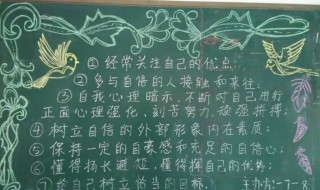 ① 经常关注自己的优点
② 多与自信的人接触和来往;
③ 自我心理暗示,不断对自己进行
正面心理强化,刻苦努力,顽强拼搏;
④ 树立自信的外部形象内在素质;
⑤ 保持一定的自豪感和充足的自信心;
⑥ 懂得扬长避短,懂得挥自己的优势;
⑦ 给自己树立恰当的目标.
主办方:7-8